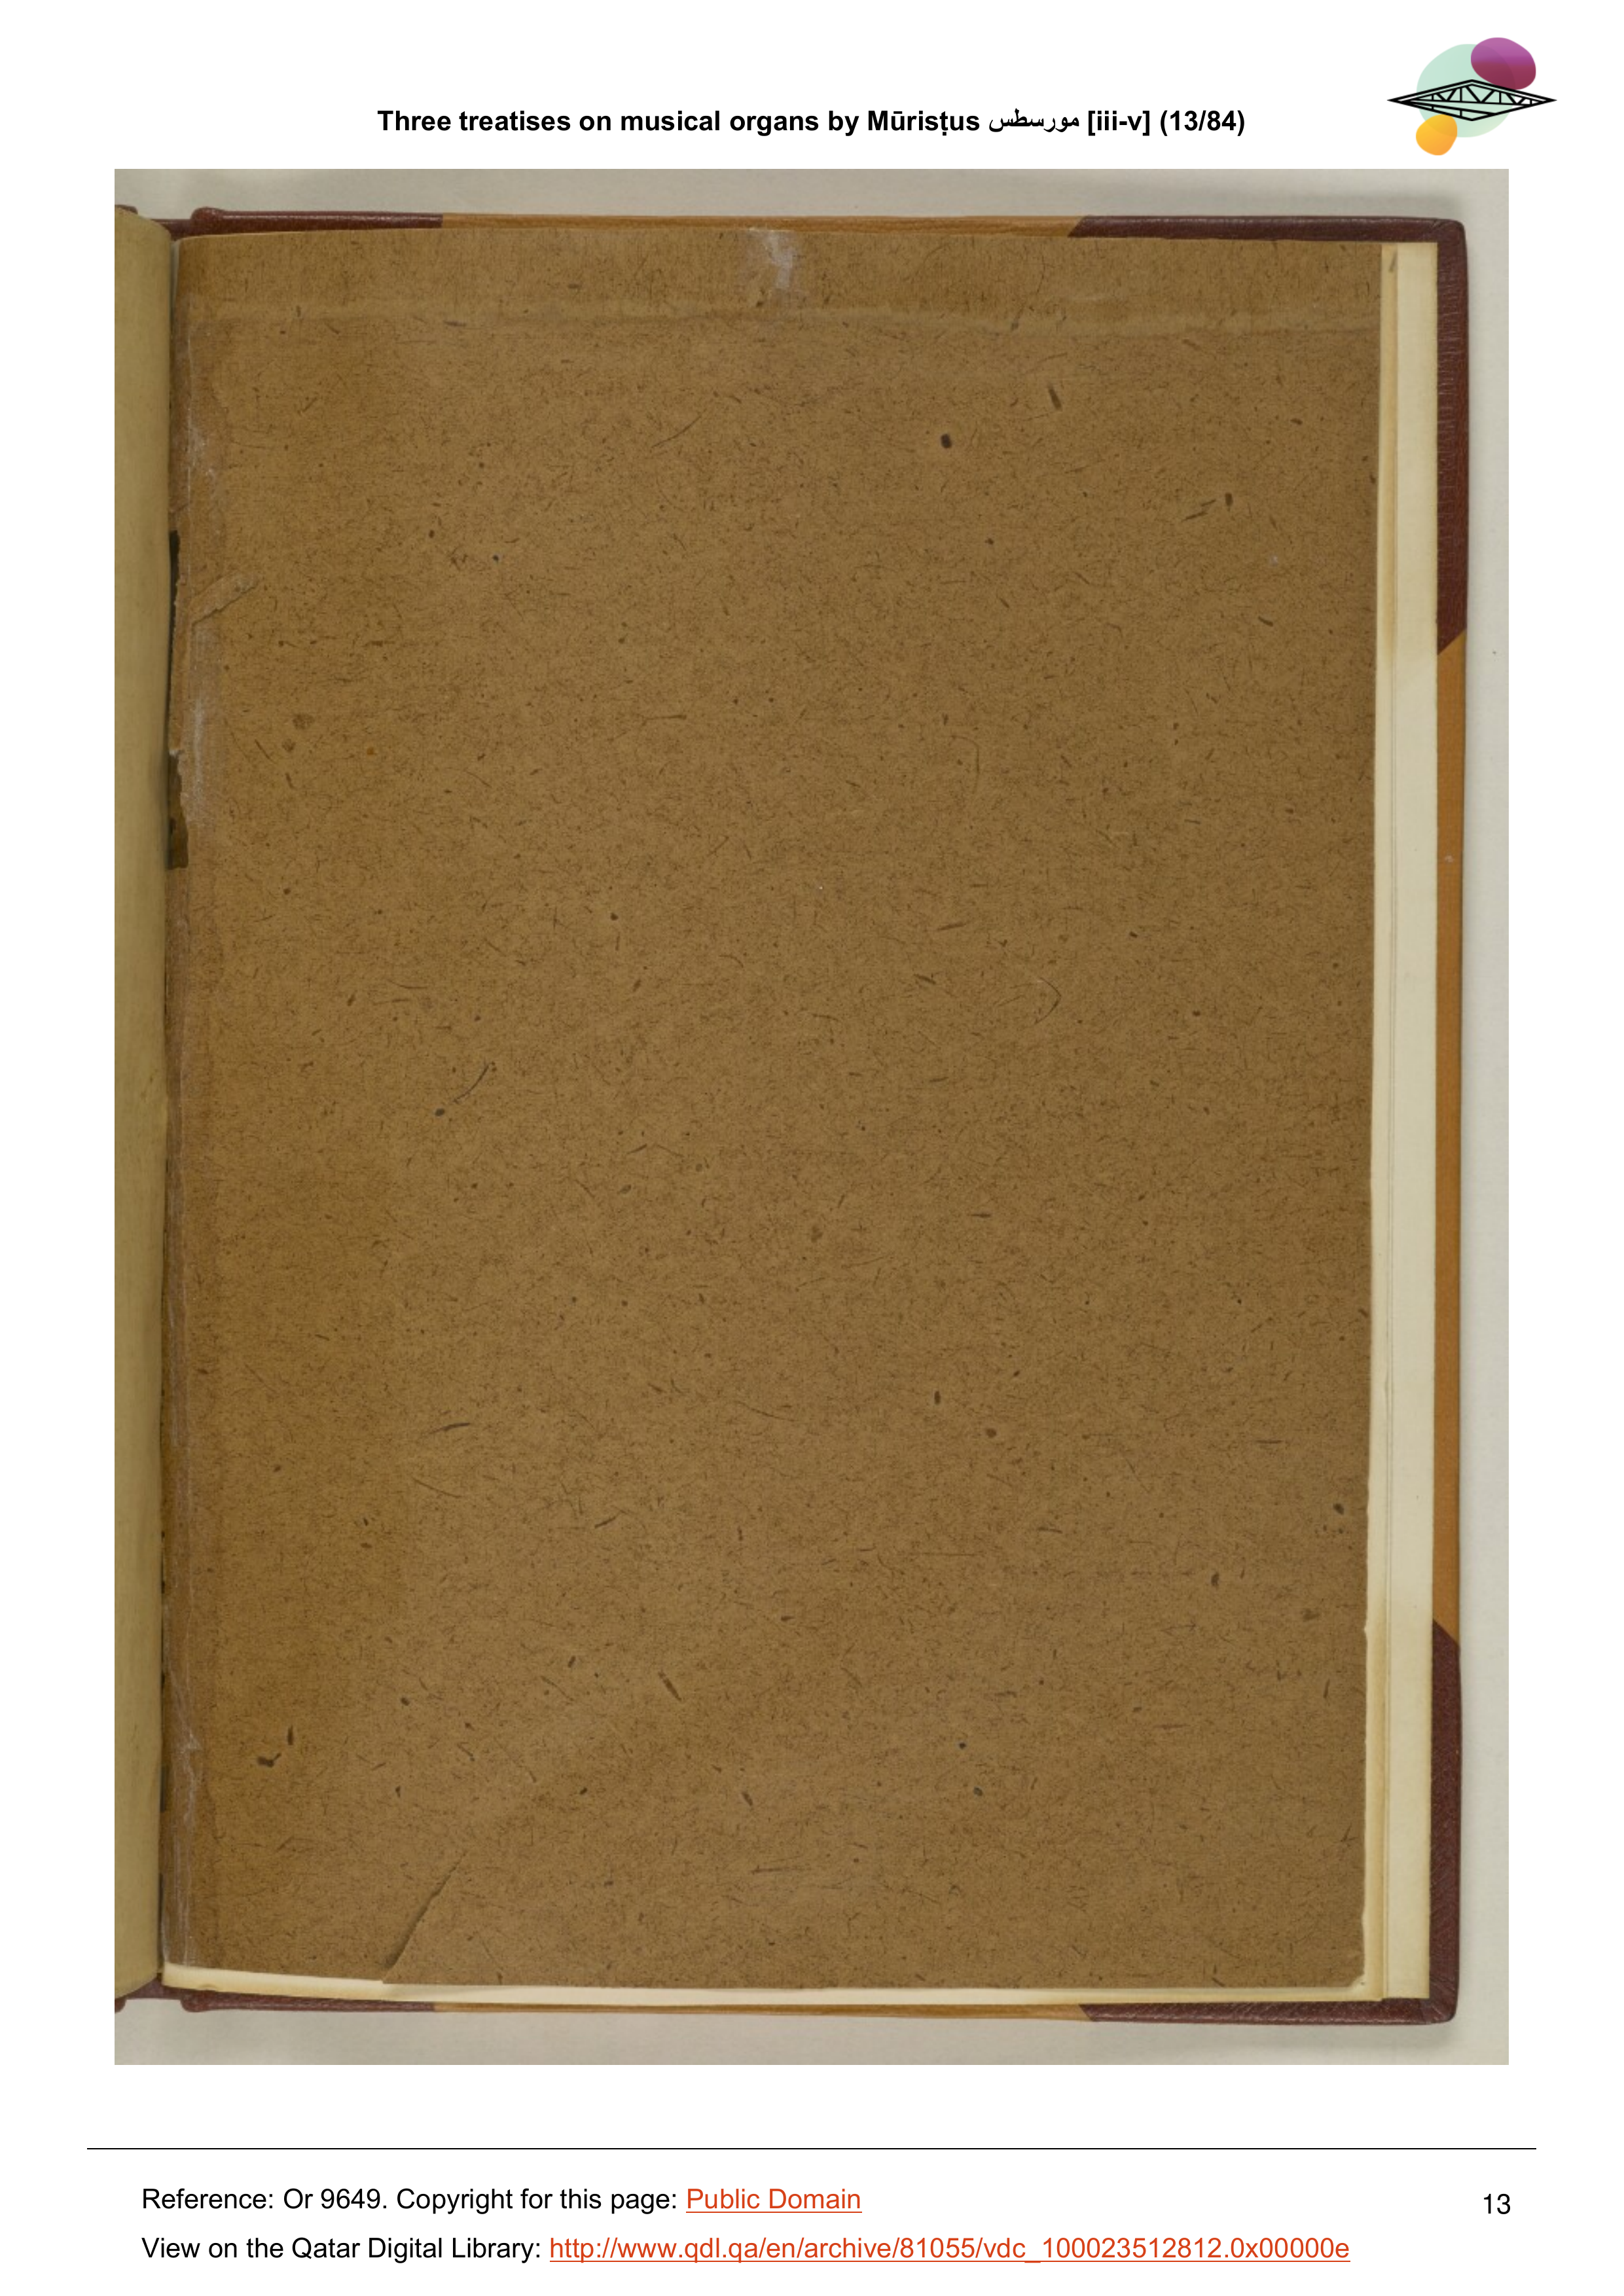 Three treatises on musical organs by Mūrisṭus مورسطس [iii-v] (13/84)
Reference: Or 9649. Copyright for this page: Public Domain
13
View on the Qatar Digital Library: http://www.qdl.qa/en/archive/81055/vdc_100023512812.0x00000e